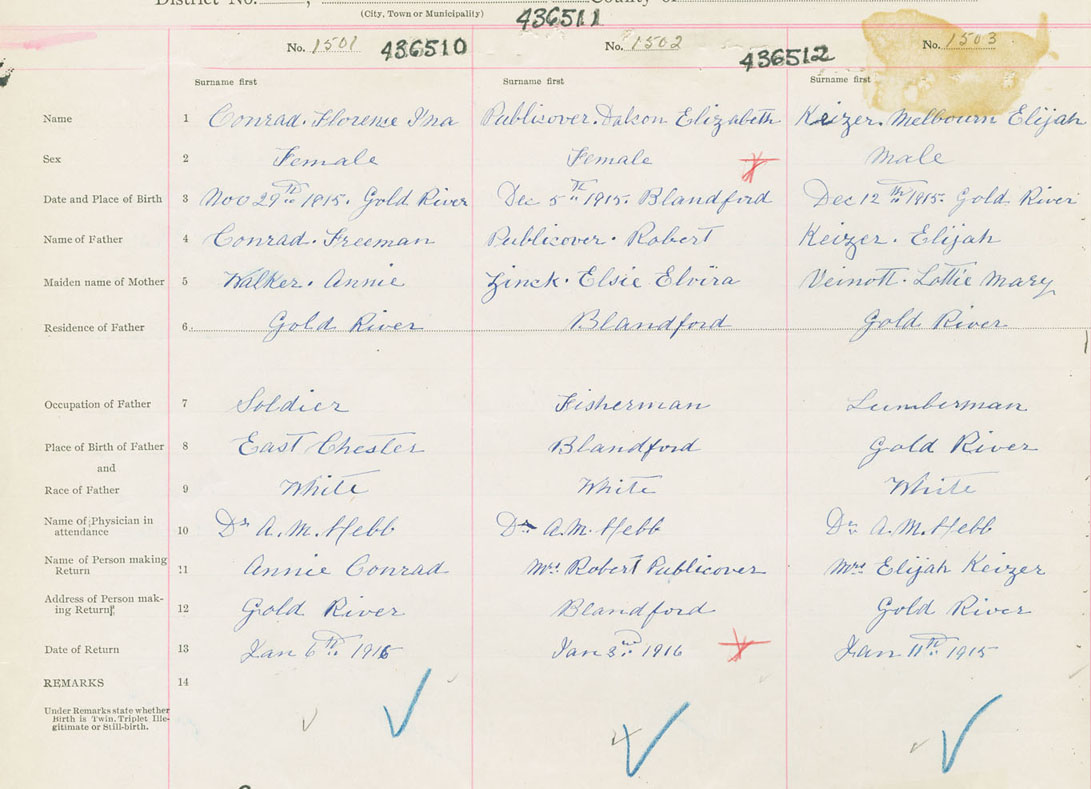 District No. , County of
(City, Town or Municipality)
436511
No. 1501 436510 No. 1502 436512 No. 1503
Surname first Surname first Surname first
Name 1 Conrad. Florence Ina Publicover. Dalson Elizabeth Keizer. Melbourn Elijah
Sex 2 Female Female Male
Date and Place of Birth 3 Nov 29th 1915. Gold River Dec 5th 1915. Blandford Dec 12th 1915. Gold River
Name of Father 4 Conrad. Freeman Publicover. Robert Keizer. Elijah
Maiden name of Mother 5 Walker. Annie Zinck. Elsie Elvira Veinott. Lottie Mary
Residence of Father 6 Gold River Blandford Gold River
Occupation of Father 7 Soldier Fisherman Lumberman
Place of Birth of Father 8 East Chester Blandford Gold River
and
Race of Father 9 White White White
Name of Physician in
attendance 10 Dr A. M. Hebb Dr A.M. Hebb Dr A.M. Hebb
Name of Person making
Return 11 Annie Conrad Mrs Robert Publicover Mrs Elijah Keizer
Address of Person mak-
ing Return 12 Gold River Blandford Gold River
Date of Return 13 Jan 6th 1916 Jan 3rd 1916 Jan 11th 1915
REMARKS 14
Under Remarks state whether
Birth is Twin, Triplet Ille-
gitimate or Still-birth.